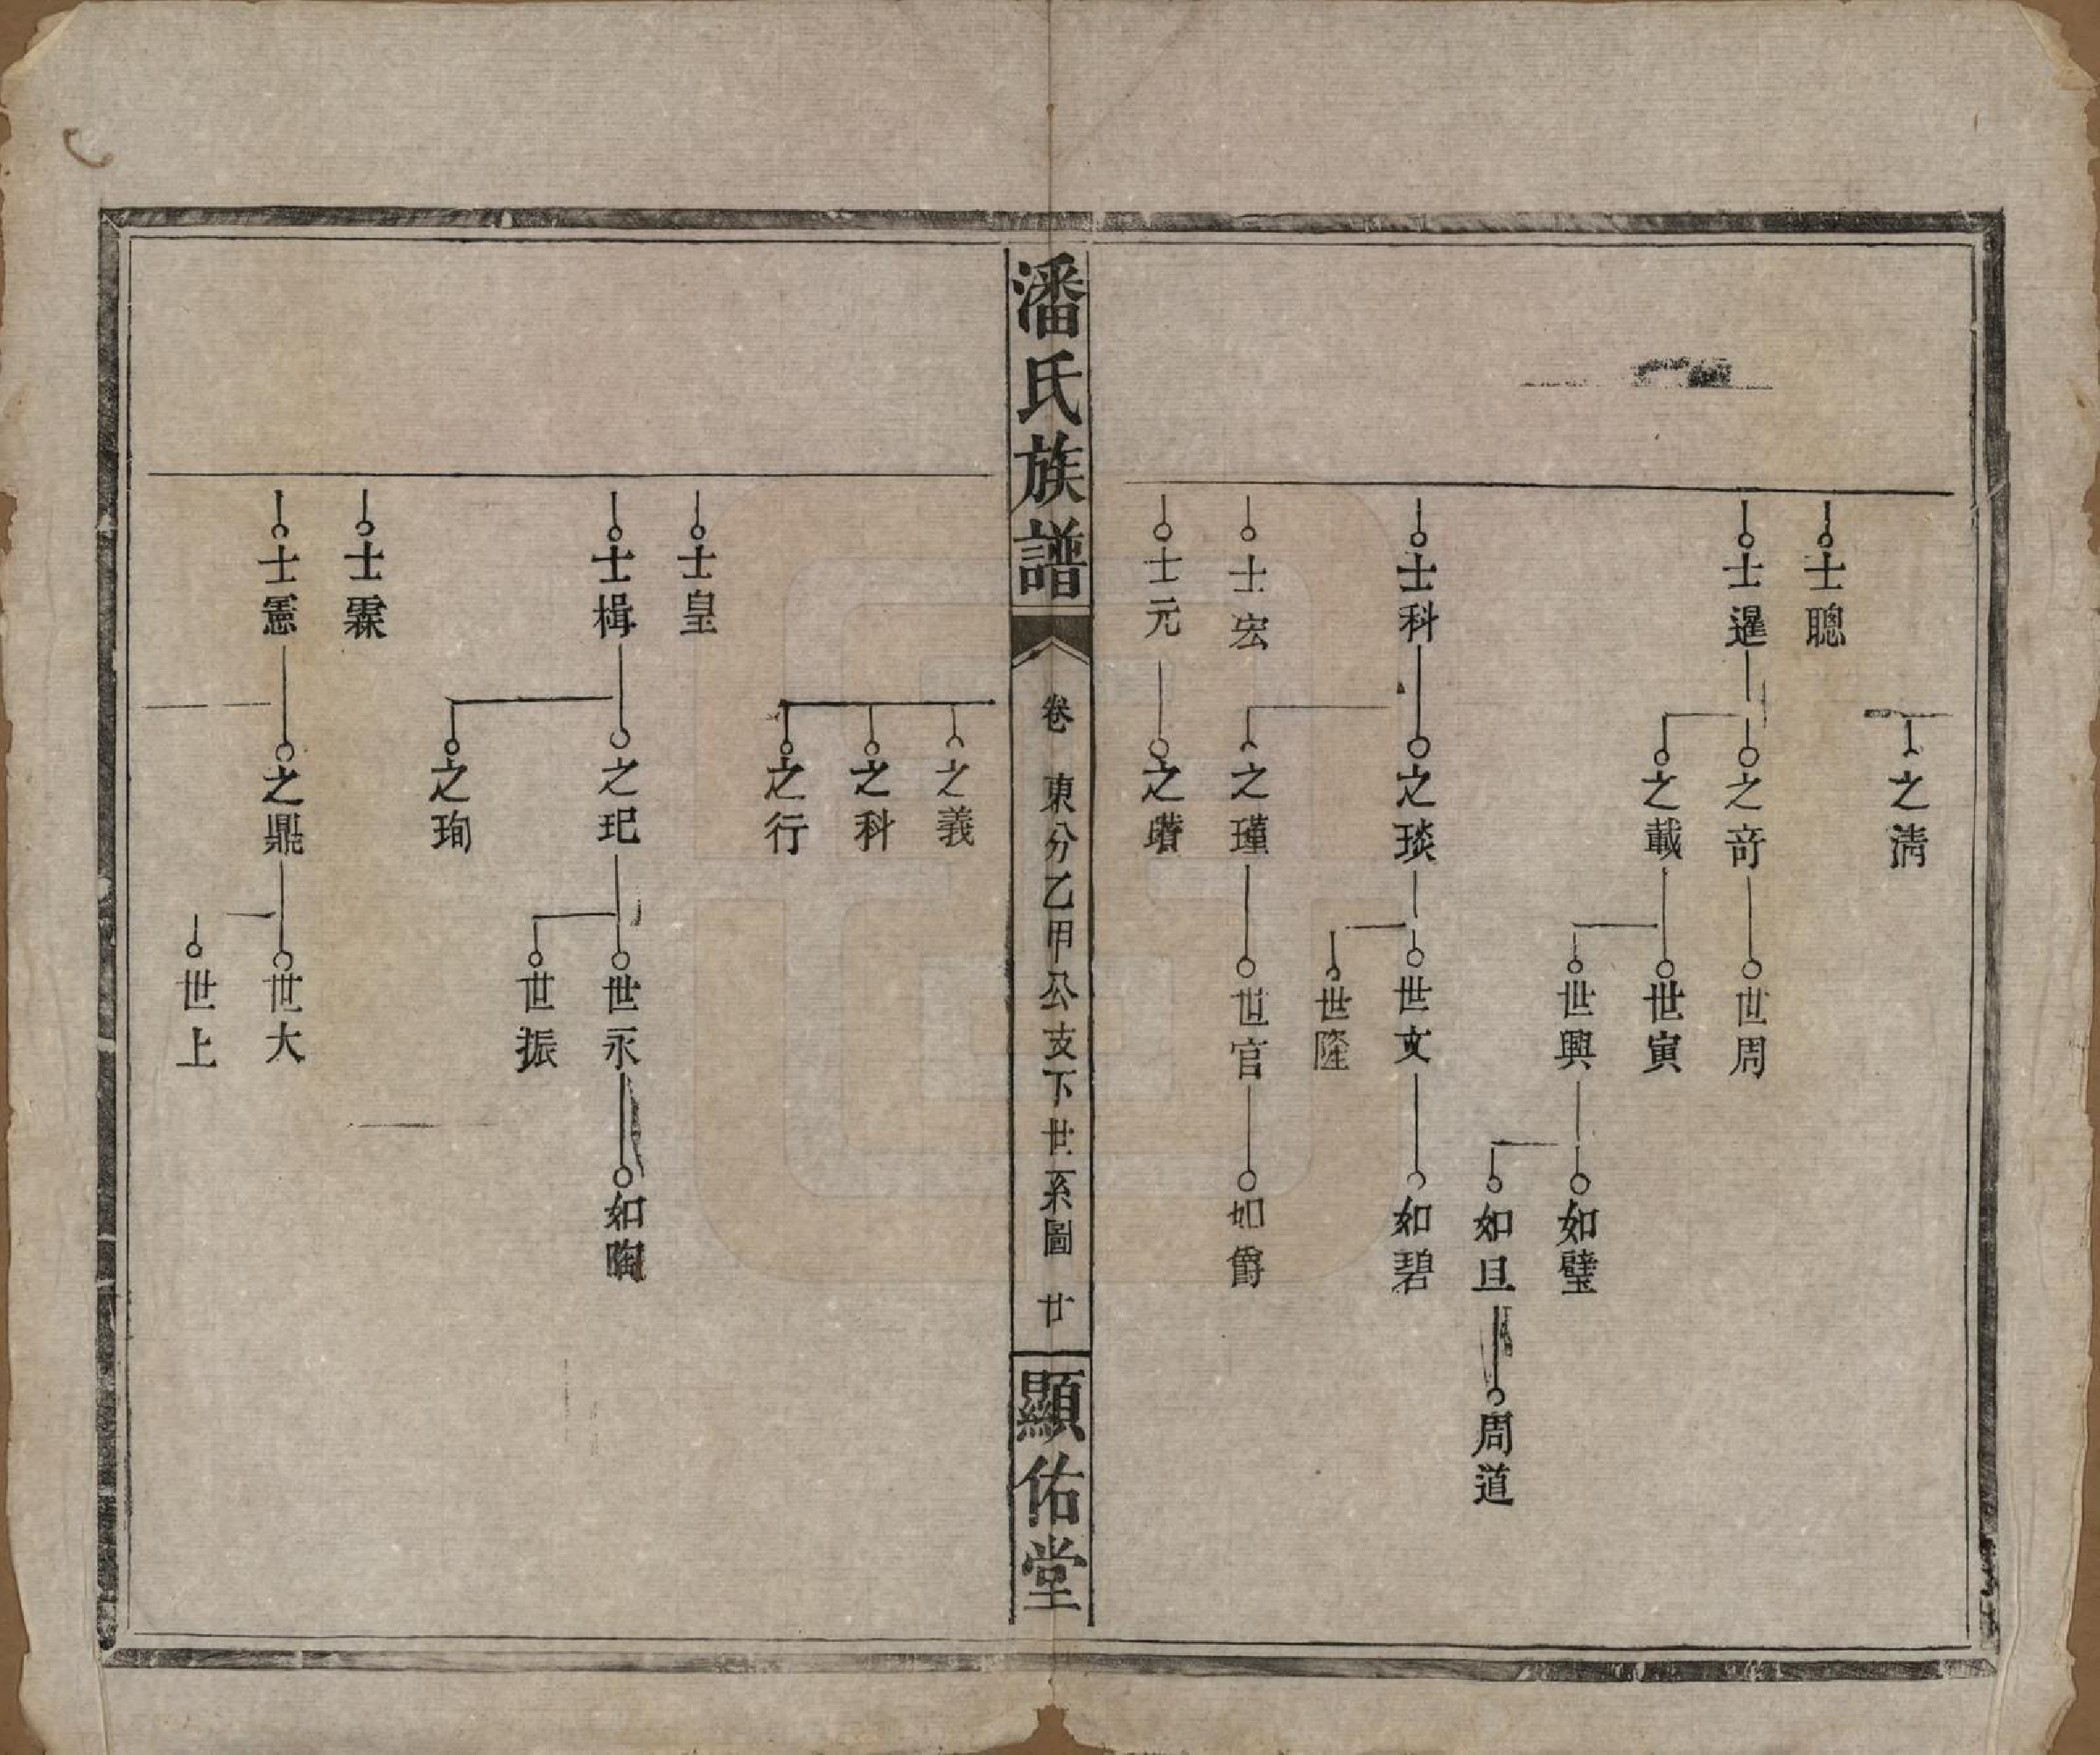 之淸
士聰
士暹
之竒
世周
之載
世寅
世興
如璧
如旦
周道
士科
之琰
世文
如碧
世隆
士宏
之瑾
世官
如爵
士元
之瞔
潘氏族譜
卷 東分乙甲公支下世系圖 廿
顯佑堂
之義
之科
之行
士皇
士楫
之玘
世永
如陶
世振
之珣
士霖
士憲
之鼎
世大
世上